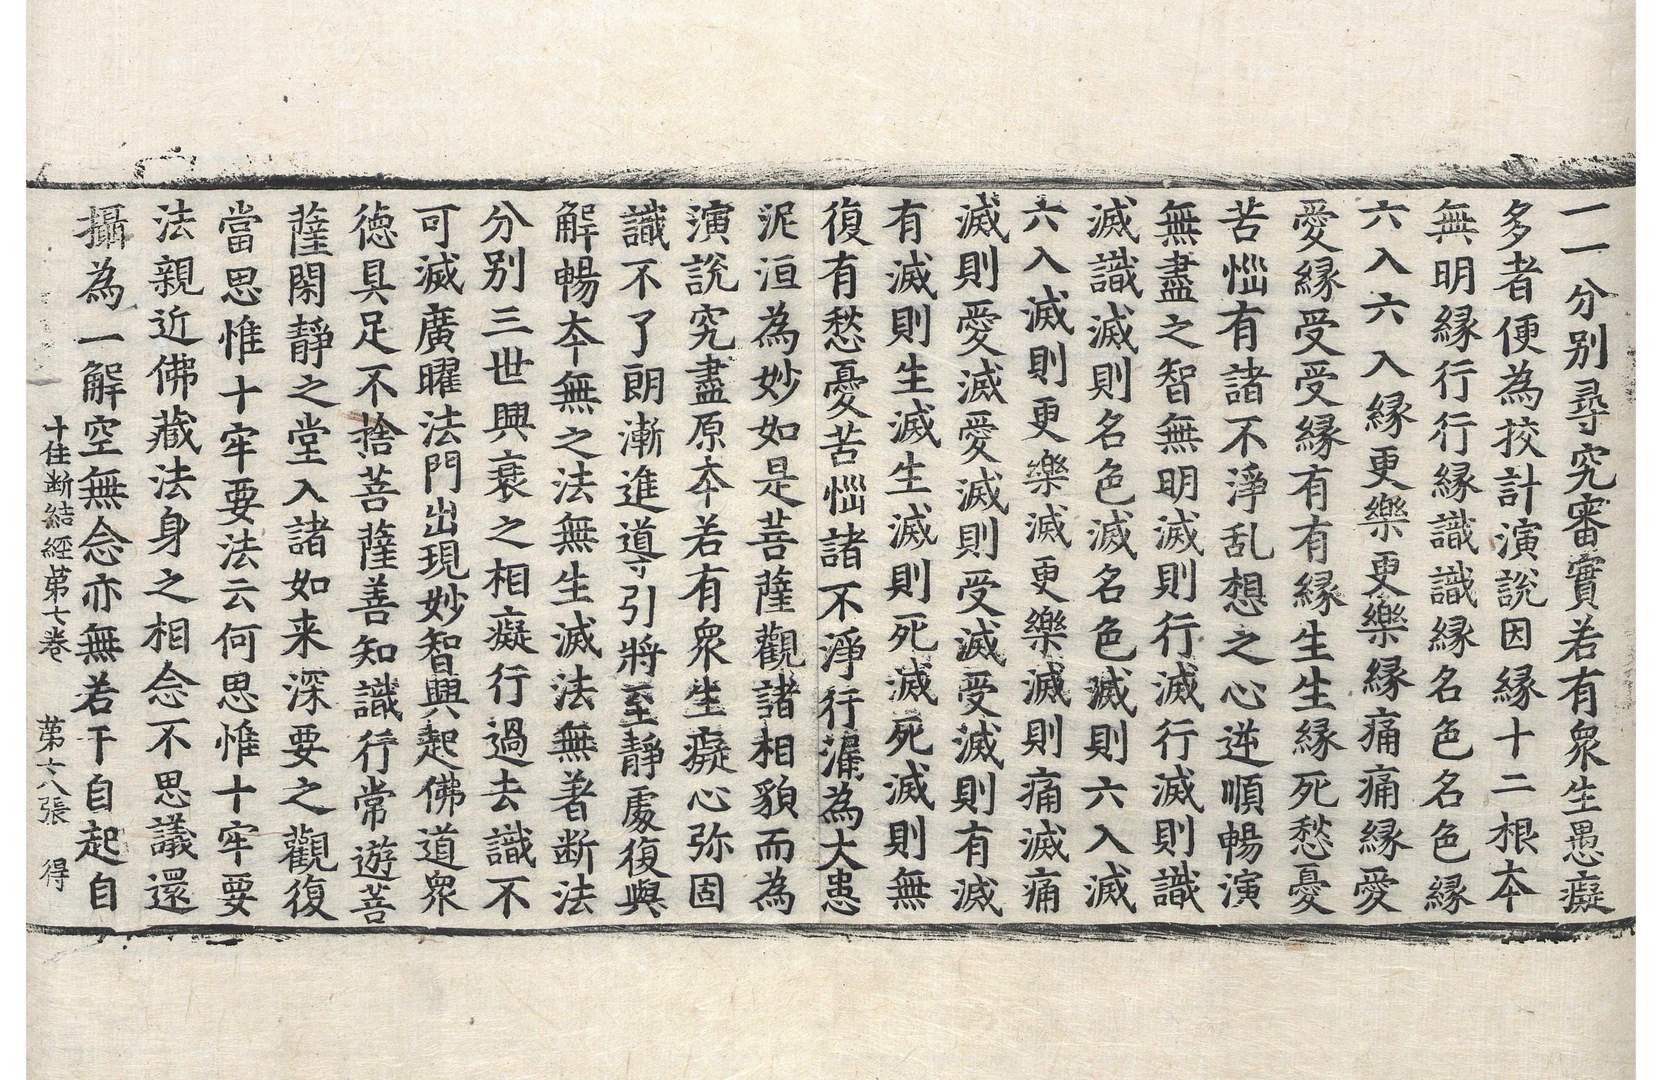 一一分別尋究審實若有衆生愚癡
多者便為挍計演說因縁十二根本
無明縁行行縁識識縁名色名色縁
六入六入縁更樂更樂縁痛痛縁愛
愛縁受受縁有有縁生生縁死愁憂
苦惱有諸不淨乱想之心逆順暢演
無盡之智無明滅則行滅行滅則識
滅識滅則名色滅名色滅則六入滅
六入滅則更樂滅更樂滅則痛滅痛
滅則愛滅愛滅則受滅受滅則有滅
有滅則生滅生滅則死滅死滅則無
復有愁憂苦惱諸不淨行滅為大患
泥洹為妙如是菩薩觀諸相貌而為
演說究盡原本若有衆生癡心弥固
識不了朗漸進導引將至靜處復與
解暢本無之法無生滅法無著斷法
分別三世興衰之相癡行過去識不
可滅廣曜法門出現妙智興起佛道衆
德具足不捨菩薩善知識行常遊菩
薩閑靜之堂入諸如来深要之觀復
當思惟十牢要法云何思惟十牢要
法親近佛藏法身之相念不思議還
攝為一解空無念亦無若干自起自
十住断結經第七卷 第十八張 得